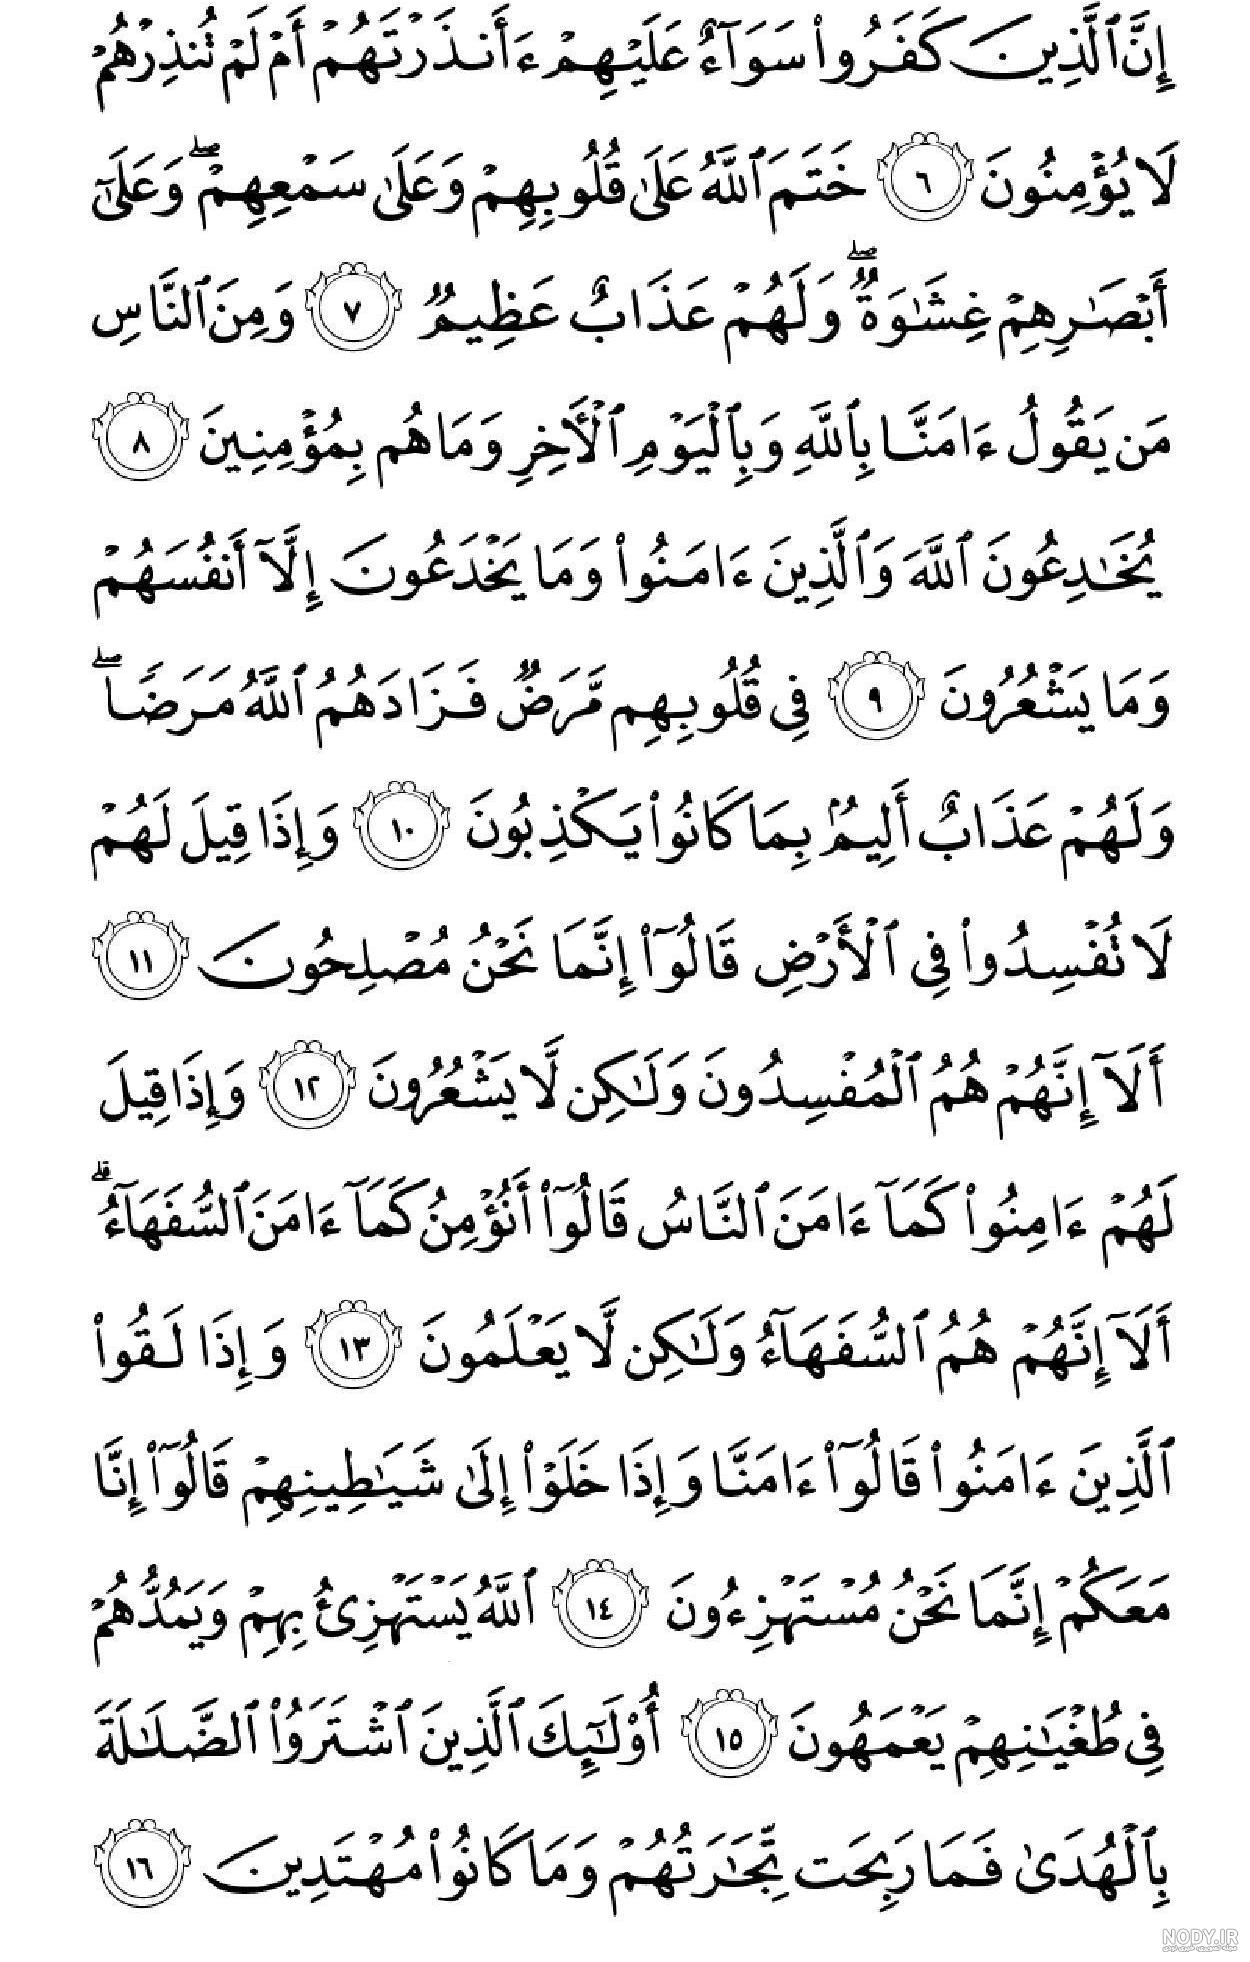 إِنَّ ٱلَّذِينَ كَفَرُوا۟ سَوَآءٌ عَلَيْهِمْ ءَأَنذَرْتَهُمْ أَمْ لَمْ تُنذِرْهُمْ
لَا يُؤْمِنُونَ ٦ خَتَمَ ٱللَّهُ عَلَىٰ قُلُوبِهِمْ وَعَلَىٰ سَمْعِهِمْ ۖ وَعَلَىٰٓ
أَبْصَـٰرِهِمْ غِشَـٰوَةٌ ۖ وَلَهُمْ عَذَابٌ عَظِيمٌ ٧ وَمِنَ ٱلنَّاسِ
مَن يَقُولُ ءَامَنَّا بِٱللَّهِ وَبِٱلْيَوْمِ ٱلْـَٔاخِرِ وَمَا هُم بِمُؤْمِنِينَ ٨
يُخَـٰدِعُونَ ٱللَّهَ وَٱلَّذِينَ ءَامَنُوا۟ وَمَا يَخْدَعُونَ إِلَّآ أَنفُسَهُمْ
وَمَا يَشْعُرُونَ ٩ فِى قُلُوبِهِم مَّرَضٌ فَزَادَهُمُ ٱللَّهُ مَرَضًا ۖ
وَلَهُمْ عَذَابٌ أَلِيمٌۢ بِمَا كَانُوا۟ يَكْذِبُونَ ١٠ وَإِذَا قِيلَ لَهُمْ
لَا تُفْسِدُوا۟ فِى ٱلْأَرْضِ قَالُوٓا۟ إِنَّمَا نَحْنُ مُصْلِحُونَ ١١
أَلَآ إِنَّهُمْ هُمُ ٱلْمُفْسِدُونَ وَلَـٰكِن لَّا يَشْعُرُونَ ١٢ وَإِذَا قِيلَ
لَهُمْ ءَامِنُوا۟ كَمَآ ءَامَنَ ٱلنَّاسُ قَالُوٓا۟ أَنُؤْمِنُ كَمَآ ءَامَنَ ٱلسُّفَهَآءُ ۗ
أَلَآ إِنَّهُمْ هُمُ ٱلسُّفَهَآءُ وَلَـٰكِن لَّا يَعْلَمُونَ ١٣ وَإِذَا لَقُوا۟
ٱلَّذِينَ ءَامَنُوا۟ قَالُوٓا۟ ءَامَنَّا وَإِذَا خَلَوْا۟ إِلَىٰ شَيَـٰطِينِهِمْ قَالُوٓا۟ إِنَّا
مَعَكُمْ إِنَّمَا نَحْنُ مُسْتَهْزِءُونَ ١٤ ٱللَّهُ يَسْتَهْزِئُ بِهِمْ وَيَمُدُّهُمْ
فِى طُغْيَـٰنِهِمْ يَعْمَهُونَ ١٥ أُو۟لَـٰٓئِكَ ٱلَّذِينَ ٱشْتَرَوُا۟ ٱلضَّلَـٰلَةَ
بِٱلْهُدَىٰ فَمَا رَبِحَت تِّجَـٰرَتُهُمْ وَمَا كَانُوا۟ مُهْتَدِينَ ١٦
NODY.IR